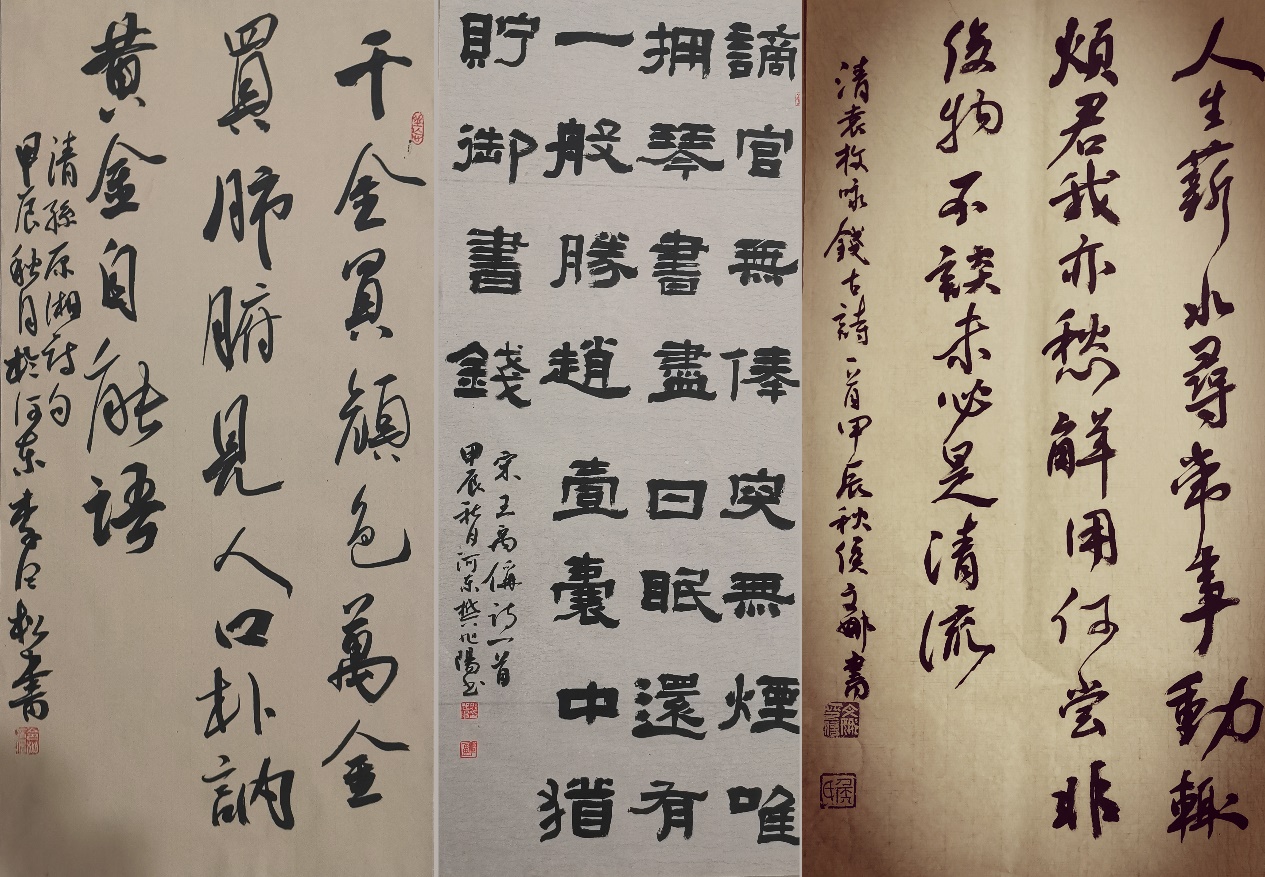 千金買顏色萬金
買肺腑見人口朴訥
黃金自能語
清孫原湘詩句
甲辰秋月於河東李松書
謫官無俸突無煙唯
拥琴書盡日眠還有
一般勝趙壹囊中猶
貯御書錢
宋王禹偁詩一首
甲辰秋月河東樊陽书
人生薪水尋常事動輒
煩君我亦愁解用何嘗非
俊物不談未必是清流
清袁枚咏錢古詩一首甲辰秋侯文娜書